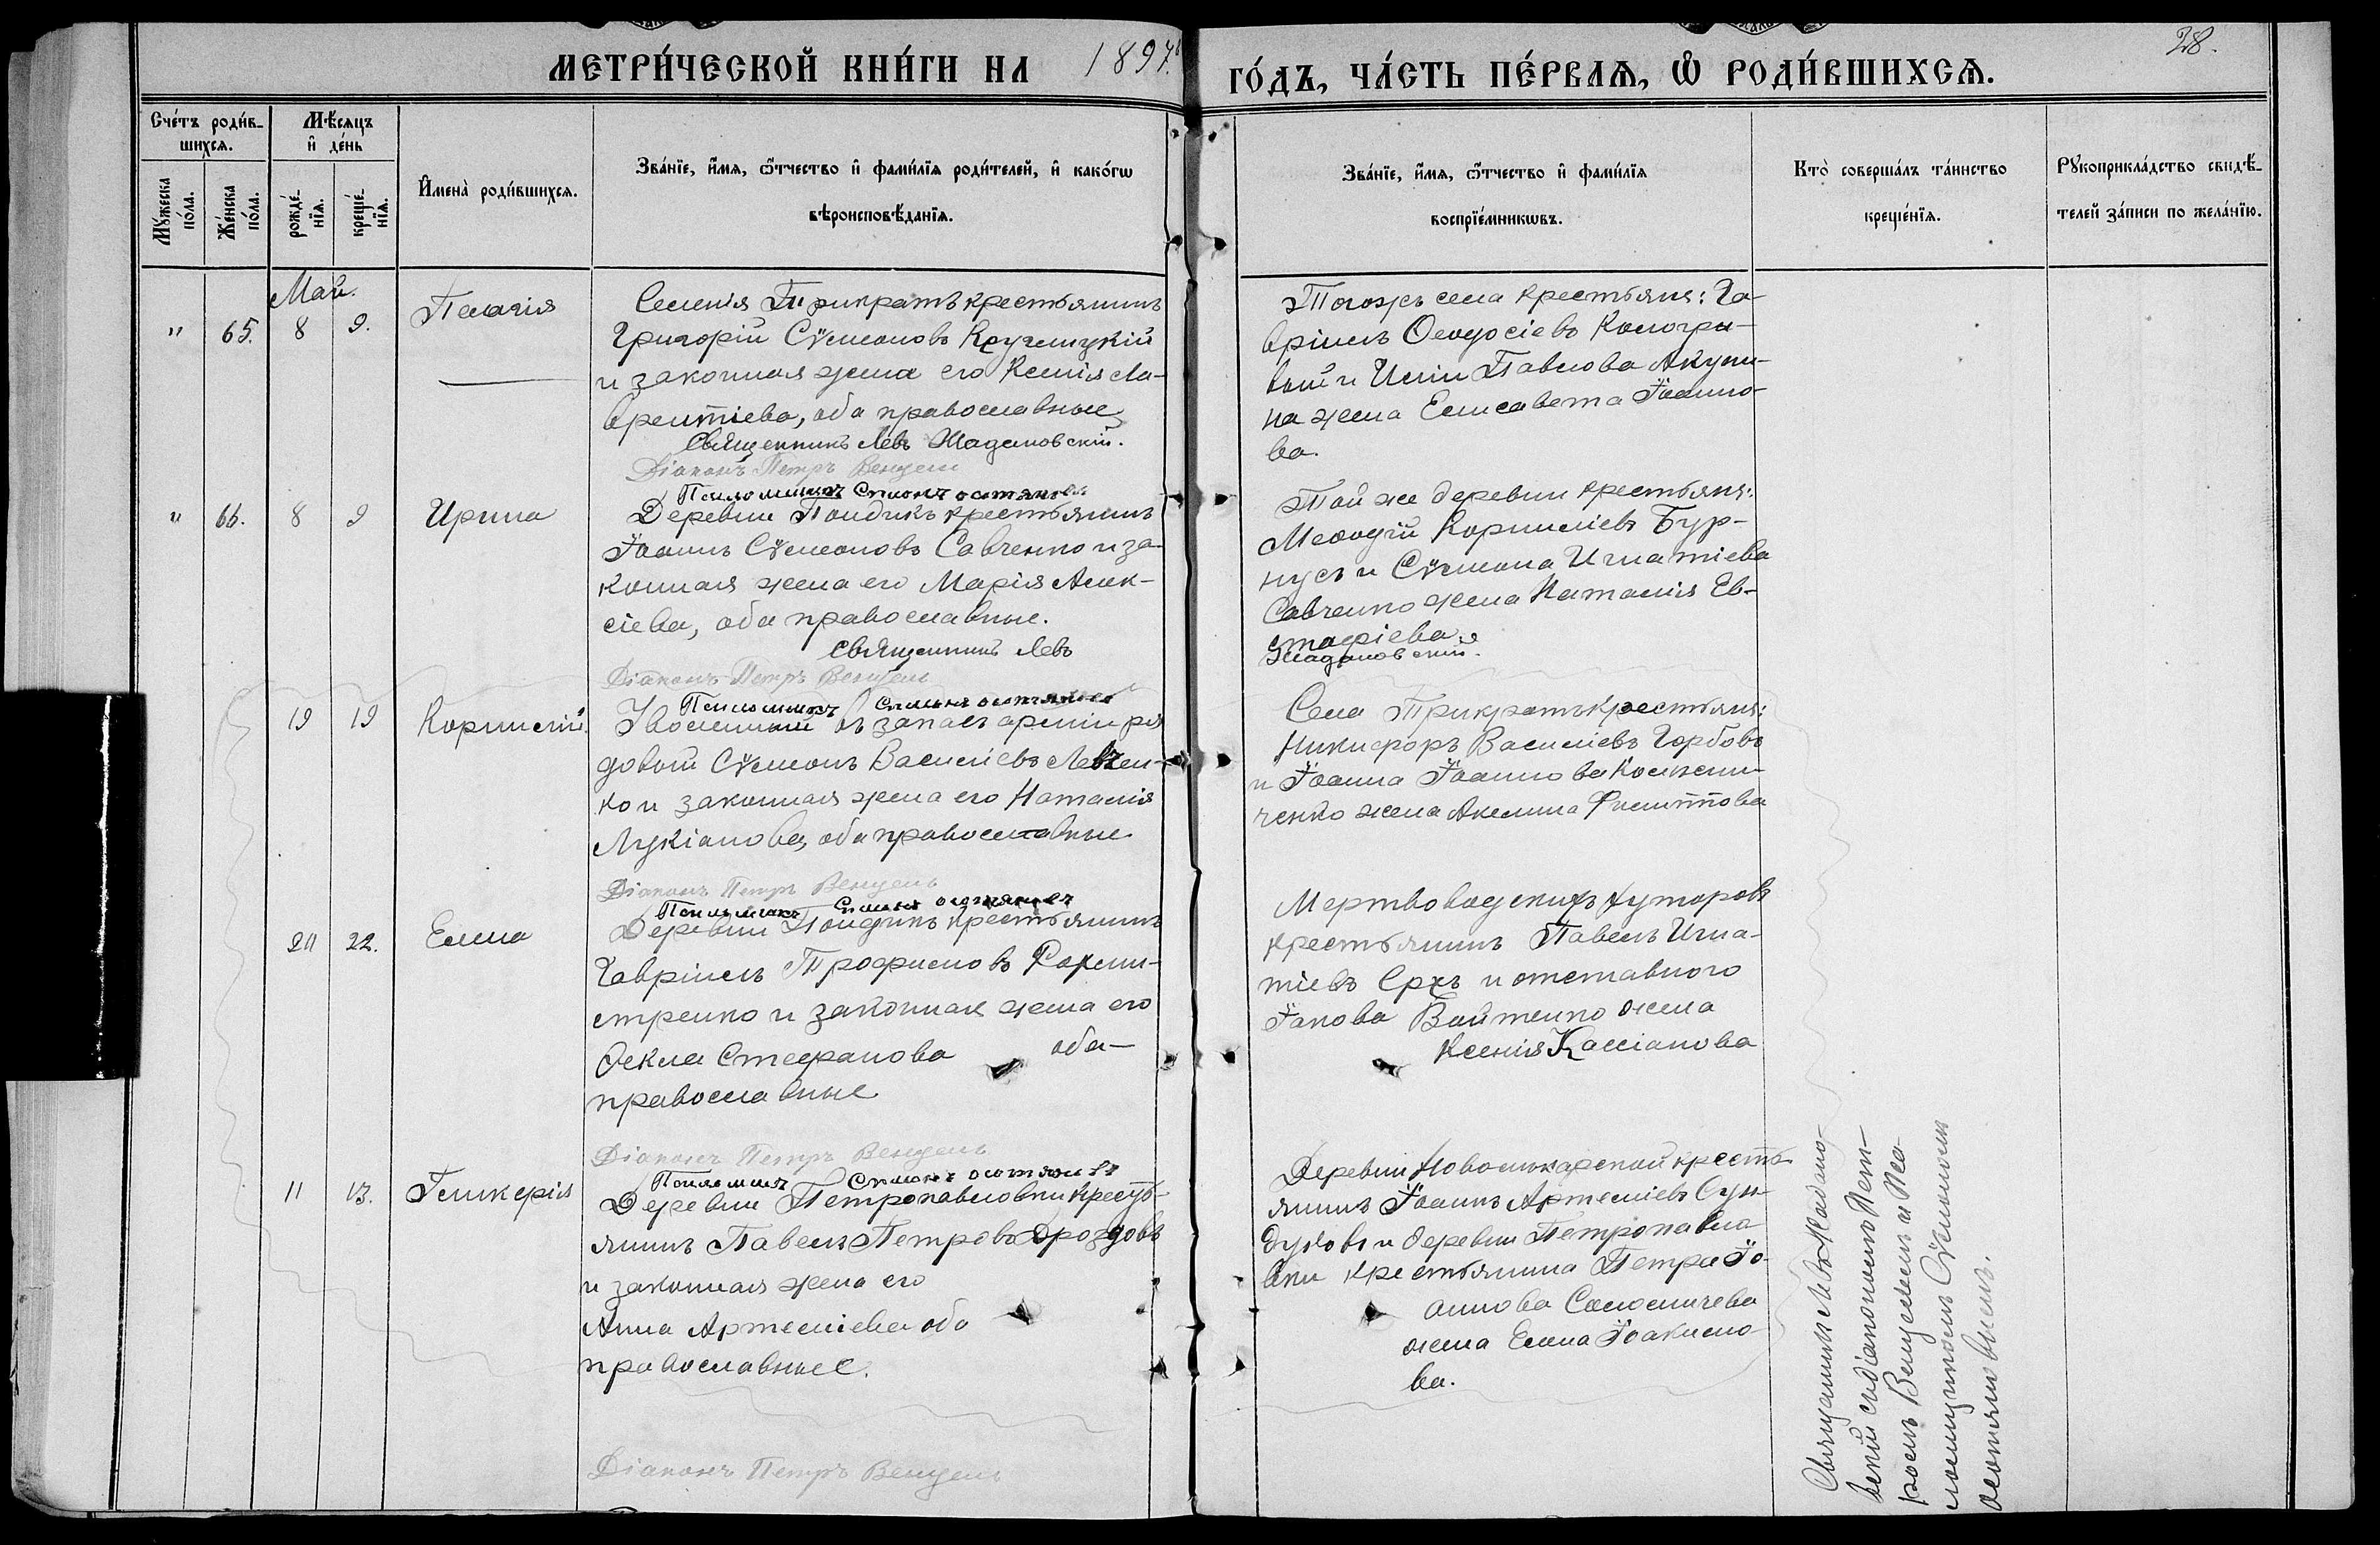 МЕТРИ́ЧЕСКОЙ КНИ́ГИ НА 1897.
ГО́ДЪ, ЧА́СТЬ ПЕ́РВАѦ, Ѡ҆ РОДИ́ВШИХСѦ.
28.
Сче́тъ роди́в-
шихсѧ.
Мѣ́сѧцъ
и҆ де́нь
Мꙋ́жеска по́ла.
Же́нска по́ла.
рожде́-
нїѧ.
креще́-
нїѧ.
И҆мена̀ роди́вшихсѧ.
Зва́нїе, и҆́мѧ, ѻ҆́тчество и҆ фами́лїѧ роди́телей, и҆ како́гѡ
вѣроисповѣ́данїѧ.
Зва́нїе, и҆́мѧ, ѻ҆́тчество и҆ фами́лїѧ
воспрїе́мникѡвъ.
Кто̀ соверша́лъ та́инство
креще́нїѧ.
Рꙋкоприкла́дство свидѣ́-
телей за́писи по жела́нїю.
Май.
" 65. 8 9.
Пелагія
Селенія Трикратъ крестьянинъ
Григорій Сѵмеоновъ Кручелицкій
и законная жена его Ксенія Ла-
врентіева, оба православные
Священникъ Левъ Жадановскій.
Діаконъ Петръ Венцель
Тогожъ села крестьяне: Га-
вріилъ Ѳеодосіевъ Кологри-
вый и Иліи Павлова Акули-
на жена Елисавета Іоанно-
ва.
" 66. 8 9
Ирина
Псаломщикъ
Деревни Пондикъ крестьянинъ
Іоаннъ Сѵмеоновъ Савченко и за-
конная жена его Марія Алек-
сіева, оба православные.
Священникъ Левъ
Жадановскій.
Діаконъ Петръ Венцель
Той же деревни крестьяне:
Меѳодій Корниліевъ Бур-
нусъ и Сѵмеона Игнатіева
Савченко жена Наталія Ев-
стафіева.
19 19
Корнилій.
Псаломщикъ
Уволенный въ запасъ арміи ря
довой Сѵмеонъ Василіевъ Левчен-
ко и законная жена его Наталія
Лукіанова, оба православные
Діаконъ Петръ Венцель
Села Трикратъ крестьяне:
Никифоръ Василіевъ Горбовъ
и Іоанна Іоаннова
ченко жена Акилина Филиппова
22.
Елена
Псаломщикъ
Деревни Пондикъ крестьянинъ
Гавріилъ Трофимовъ
и законная жена его
Ѳекла Стефанова оба
православные
Діаконъ Петръ Венцель
Мертвоводскихъ хуторовъ
крестьянинъ Павелъ Игна-
тіевъ и отставного
Іакова Войтенко жена
Ксенія Кассіанова
11 13.
Гликерія
Псаломщикъ
Деревни Петропавловки кресть-
янинъ Павелъ Петровъ Дроздовъ
и законная жена его
Анна Артеміева оба
православные.
Діаконъ Петръ Венцель
Деревни кресть-
янинъ Іоаннъ Артеміевъ Сун-
дуковъ и деревни Петропавло
вки крестьянина Петра Іо-
аннова Соломичева
жена Елена Іоакимо-
ва.
Священникъ Левъ Жадано-
вскій съ діакономъ Пет-
ромъ Венцелемъ и Пса-
ломщикомъ Сѵмеономъ